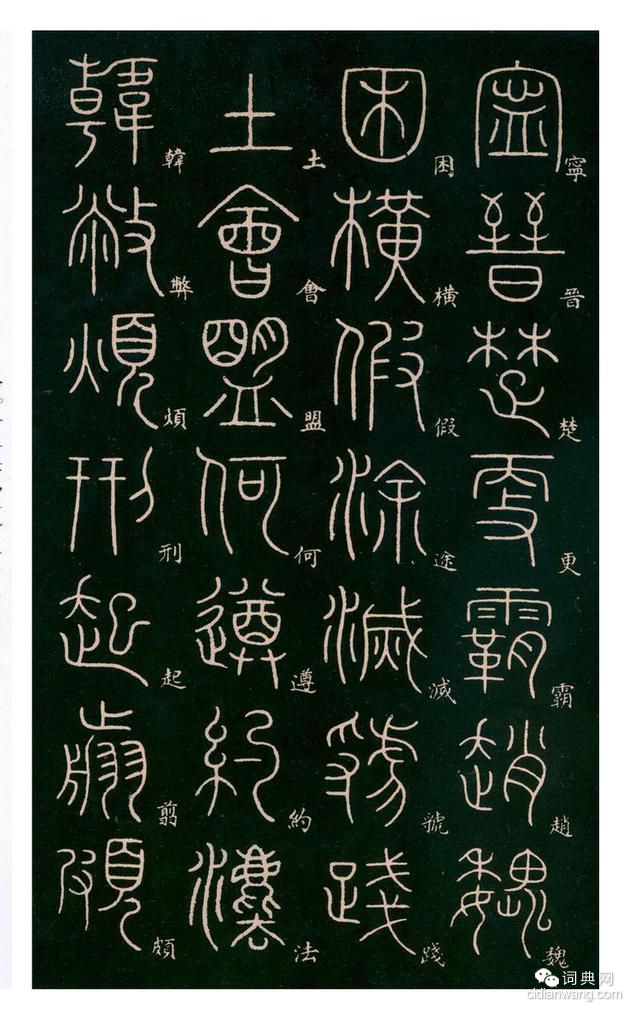 寧晉楚更霸趙魏
困橫假途滅虢踐
土會盟何遵約法
韓弊煩刑起翦頗
词典网
cidianwang.com